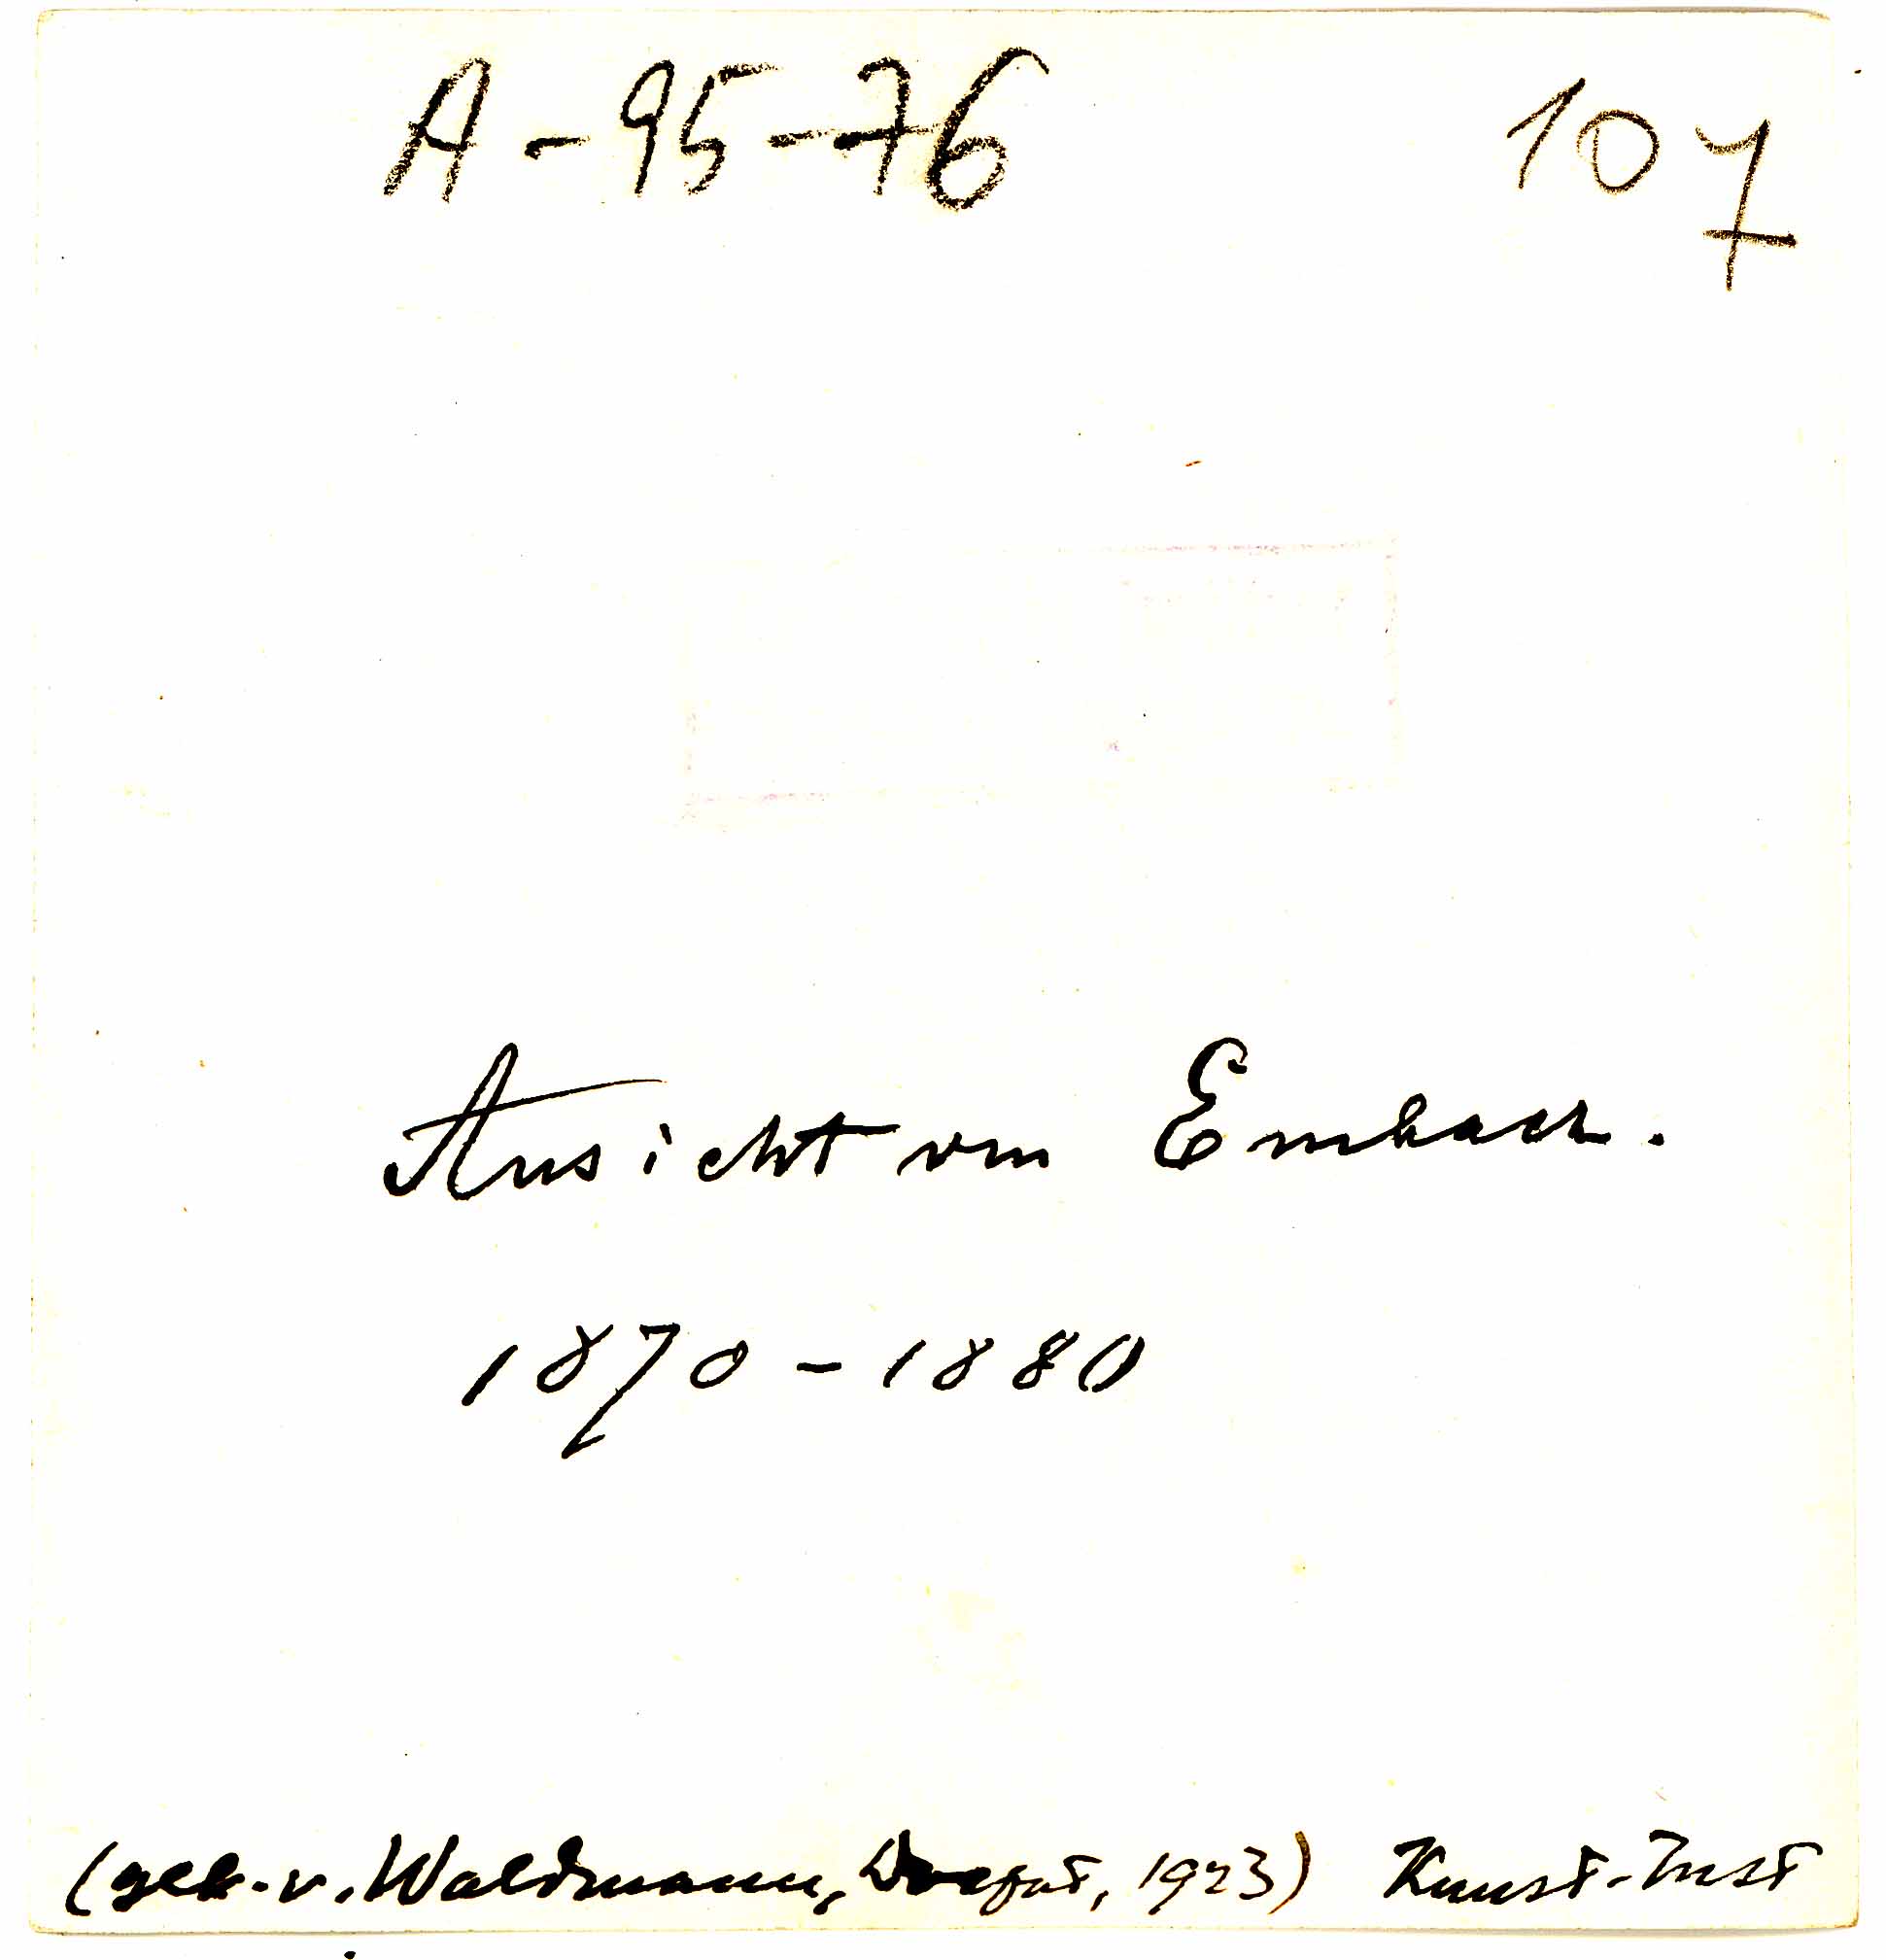 A-95-76 107
Ansicht vom Embach.
1870-1880
(geb. v. Waldmann, Dorpat, 1923) Kunst-Inst